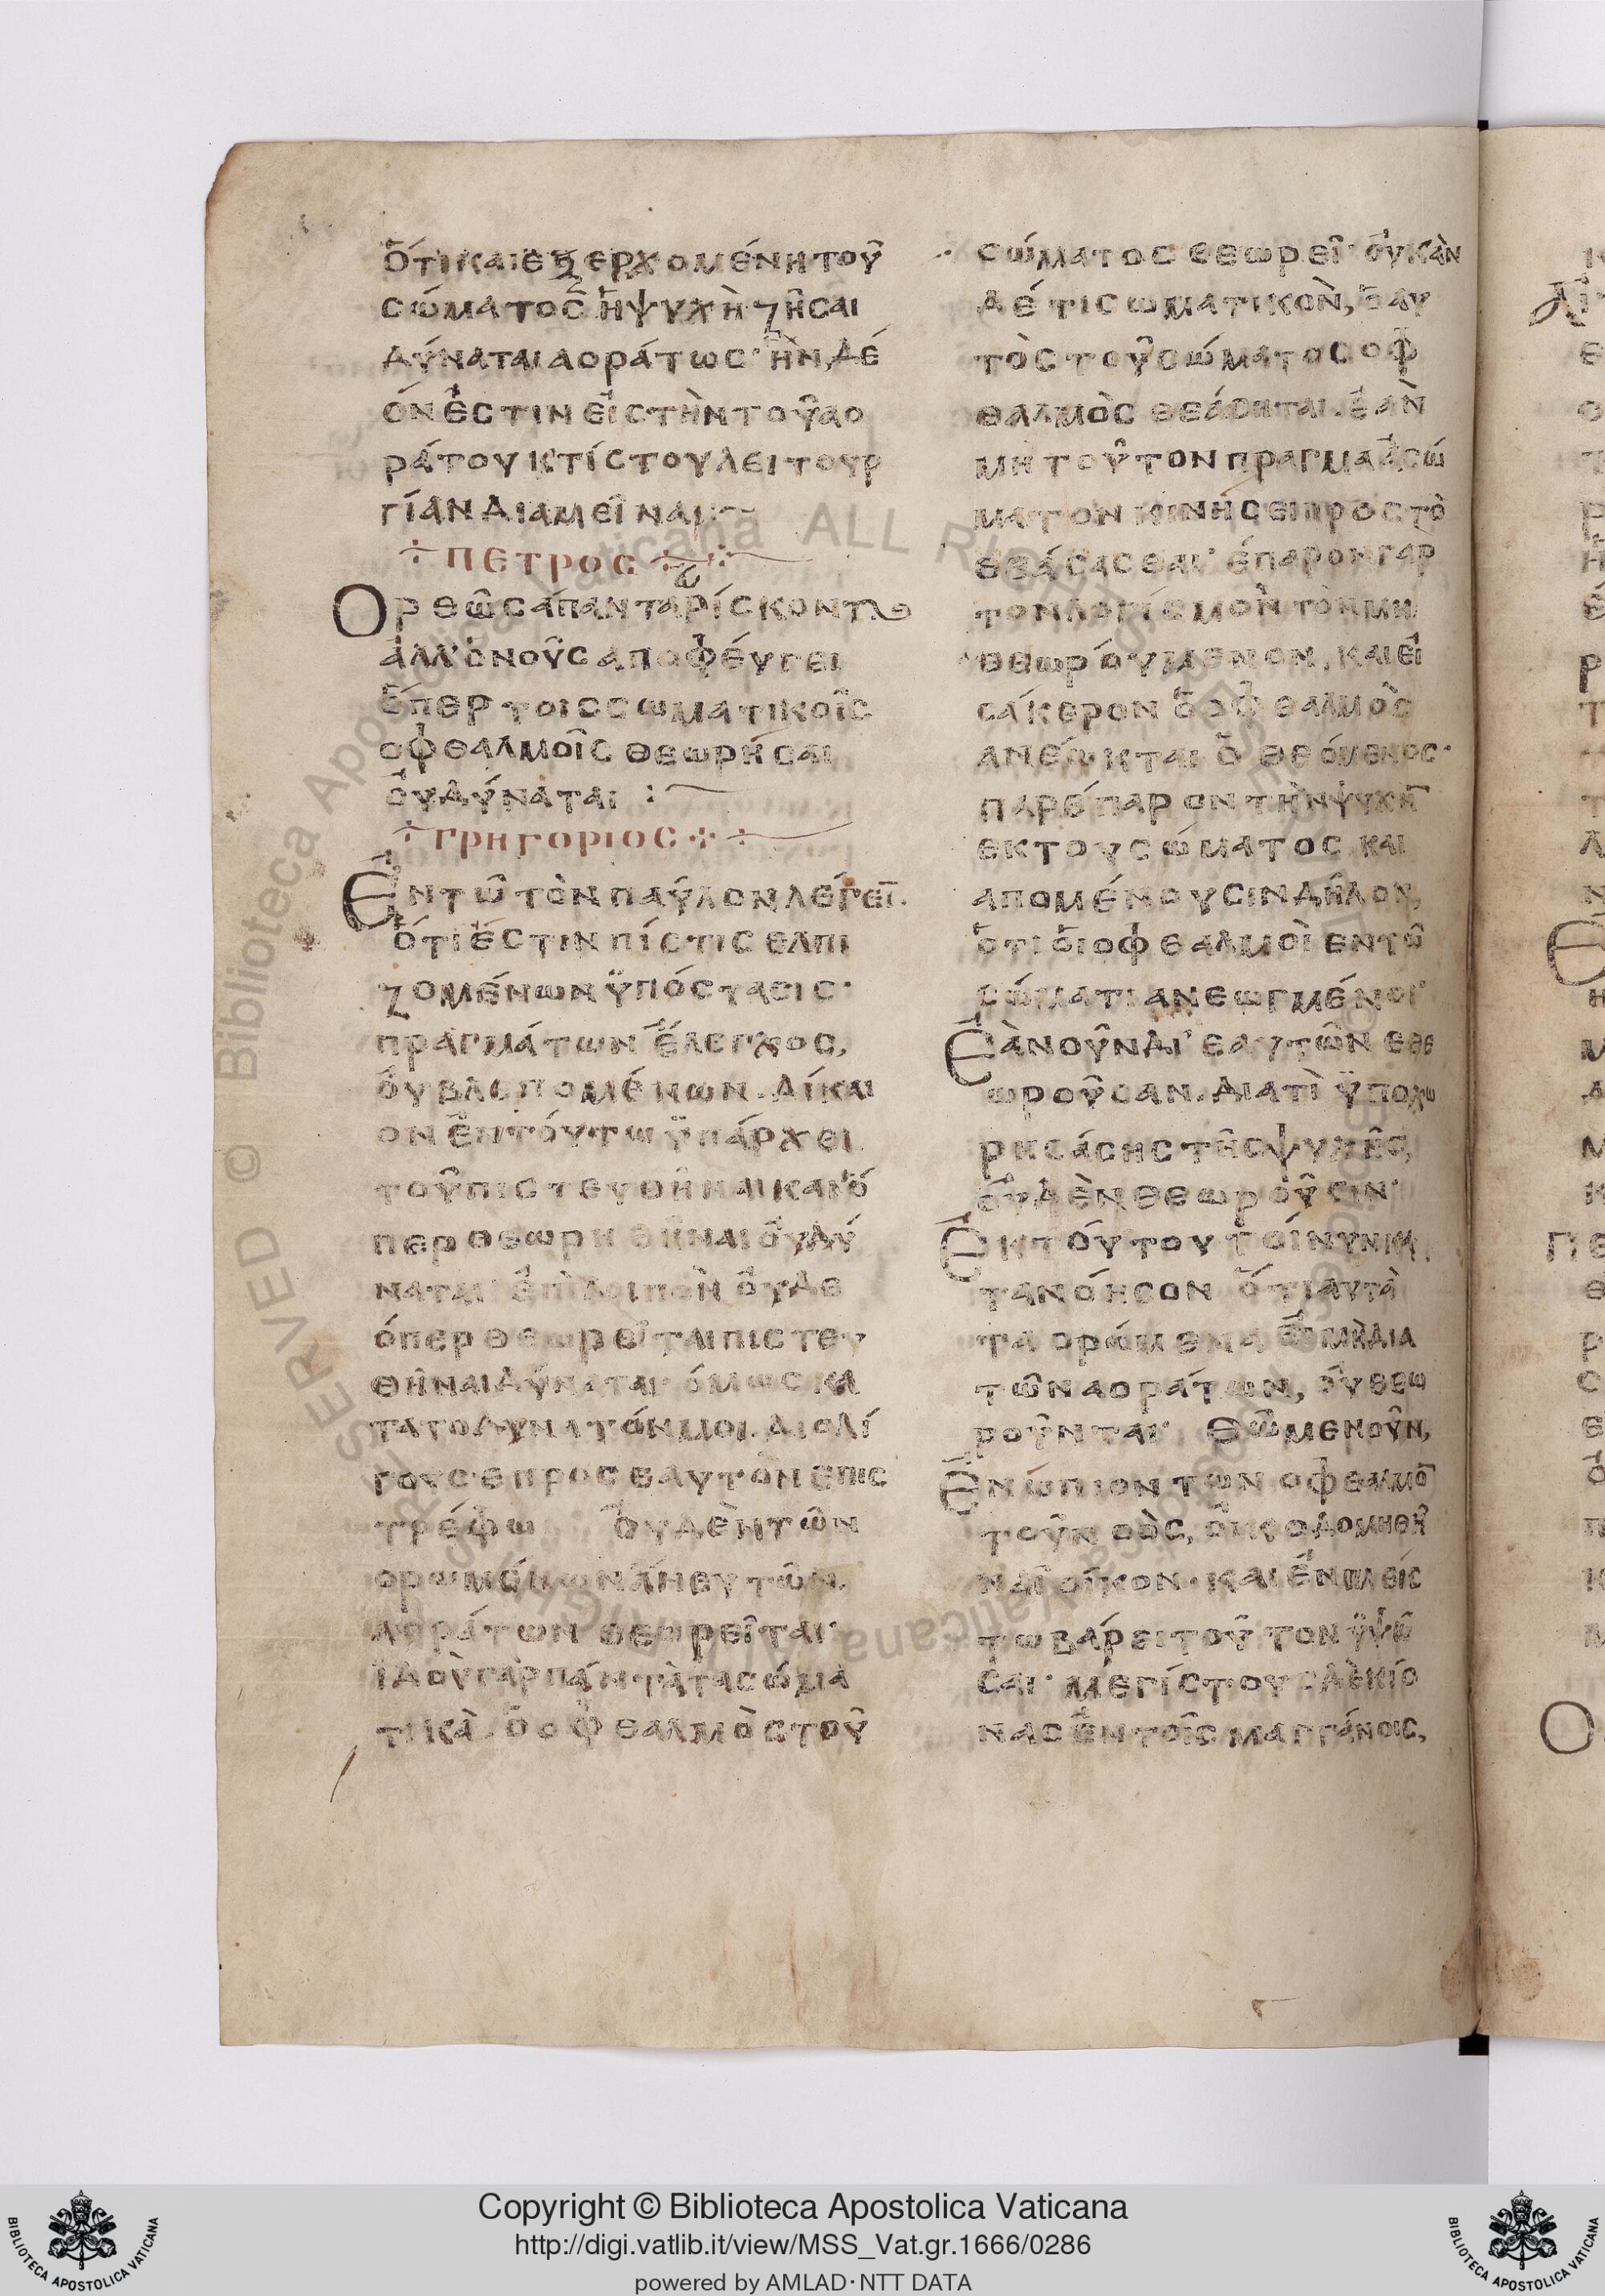 ὅτι καὶ ἐξερχομένη τοῦ
σώματος ἡ ψυχὴ ζῆσαι
δύναται ἀοράτως· ἣν δέ
ον ἐστιν εἰς τὴν τοῦ ἀο
ράτου κτίστου λειτουρ
γίαν διαμεῖναι:~
⁘ ΠΕΤΡΟС ⁘
Ὀρθῶς ἅπαντα ρίσκονται
ἀλλ' ὁ νοῦς ἀποφεύγει
ἅπερ τοῖς σωματικοῖς
ὀφθαλμοῖς θεωρῆσαι
οὐ δύναται :~
⁘ ΓΡΗΓΟΡΙΟС ⁘
Ἐν τῷ τὸν παύλον λέγει.
ὅτι ἔστιν πίστις ἐλπι
ζομένων ὑπόστασις·
πραγμάτων ἔλεγχος,
οὐ βλεπομένων. δίκαι
ον ἐν τούτω ὑπάρχει
τοῦ πιστευθῆναι καὶ ὅ
περ θεωρηθῆναι οὐ δύ
ναται· ἐπὶ λοιπὸν οὐδε
ὅπερ θεωρεῖται πιστευ
θῆναι δύναται· ὅμως κα
τα το δυνατόν μοι. δι ολί
γου σε προς εαυτὸν ἐπις
τρέφω οὐδὲν τῶν
ορωμένων
ἀοράτων θεωρεῖται·
ἰδοὺ γὰρ πάντα τὰ σωμα
τικὰ. ὁ ὀφθαλμὸς τοῦ
σώματος θεωρεῖ· οὐκ ἂν
δέ τι σωματικὸν, ὁ αυ
τὸς τοῦ σώματος οφ
θαλμὸς θεάσηται. ἐὰν
μὴ τοῦτον πραγμα ἀσώ
ματον κινήσει προς τὸ
θεάσασθαι· ἔπαρον γαρ
τον λογισμὸν τὸν μὴ
θεωρούμενον, καὶ εἰ
σάκερον ὁ ὀφθαλμὸς
ἀνέωκται ὁ θεόμενος·
παρέπαρον τὴν ψυχῆ
ἐκ τοῦ σώματος καὶ
απομένουσιν δῆλον,
ὅτι οἱ οφθαλμοὶ ἐν τῶ
σώματι ἀνεωγμένοι·
Ἐὰν οῦν δι' ἑαυτῶν ἐθε
ωροῦσαν. διατὶ ὑποχω
ρησάσης τῆς ψυχῆς,
οὐδὲν θεωροῦσιν·
Ἐκ τούτου τοίνυν κα
τανόησον ὅτι αυτὰ
τα ορώμενα εἰ μὴ δια
τῶν αοράτων, οὐ θεω
ροῦνται· Θῶμεν οῦν,
Ἐνώπιον των οφθαλμῶ
τοῦ νοὸς, οἰκοδομηθῆ
ναι οἶκον· καὶ
τω βάρει τοῦτον ὑψῶ
σαι· μεγίστους δὲ κίο
νας ἐν τοῖς μαγγάνοις,
Copyright © Biblioteca Apostolica Vaticana
http://digi.vatlib.it/view/MSS_Vat.gr.1666/0286
powered by AMLAD·NTT DATA
BIBLIOTECA APOSTOLICA VATICANA
BIBLIOTECA APOSTOLICA VATICANA